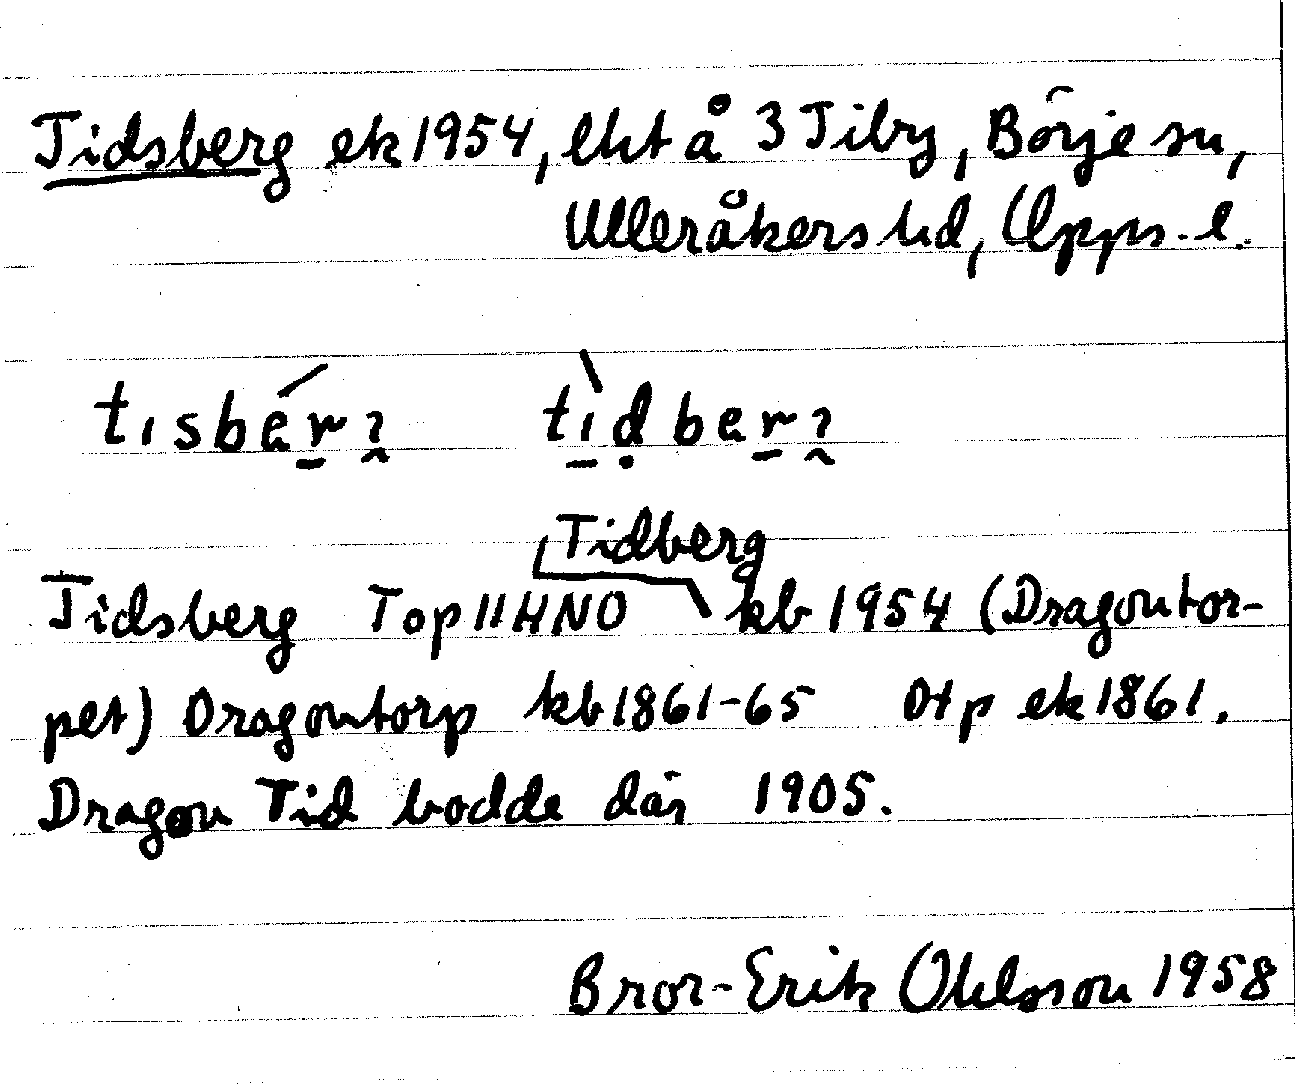 Tidsberg ek 1954, lht å 3 Tiby, Börje sn,
Ulleråkers hd, Upps. l.
tisbér tìdber
Tidberg
Tidsberg Top 11H NO kb 1954 (Dragontor-
pet) Dragontorp kb 1861-65 Dtp ek 1861.
Dragon Tid bodde där 1905.
Bror-Erik Ohlsson 1958